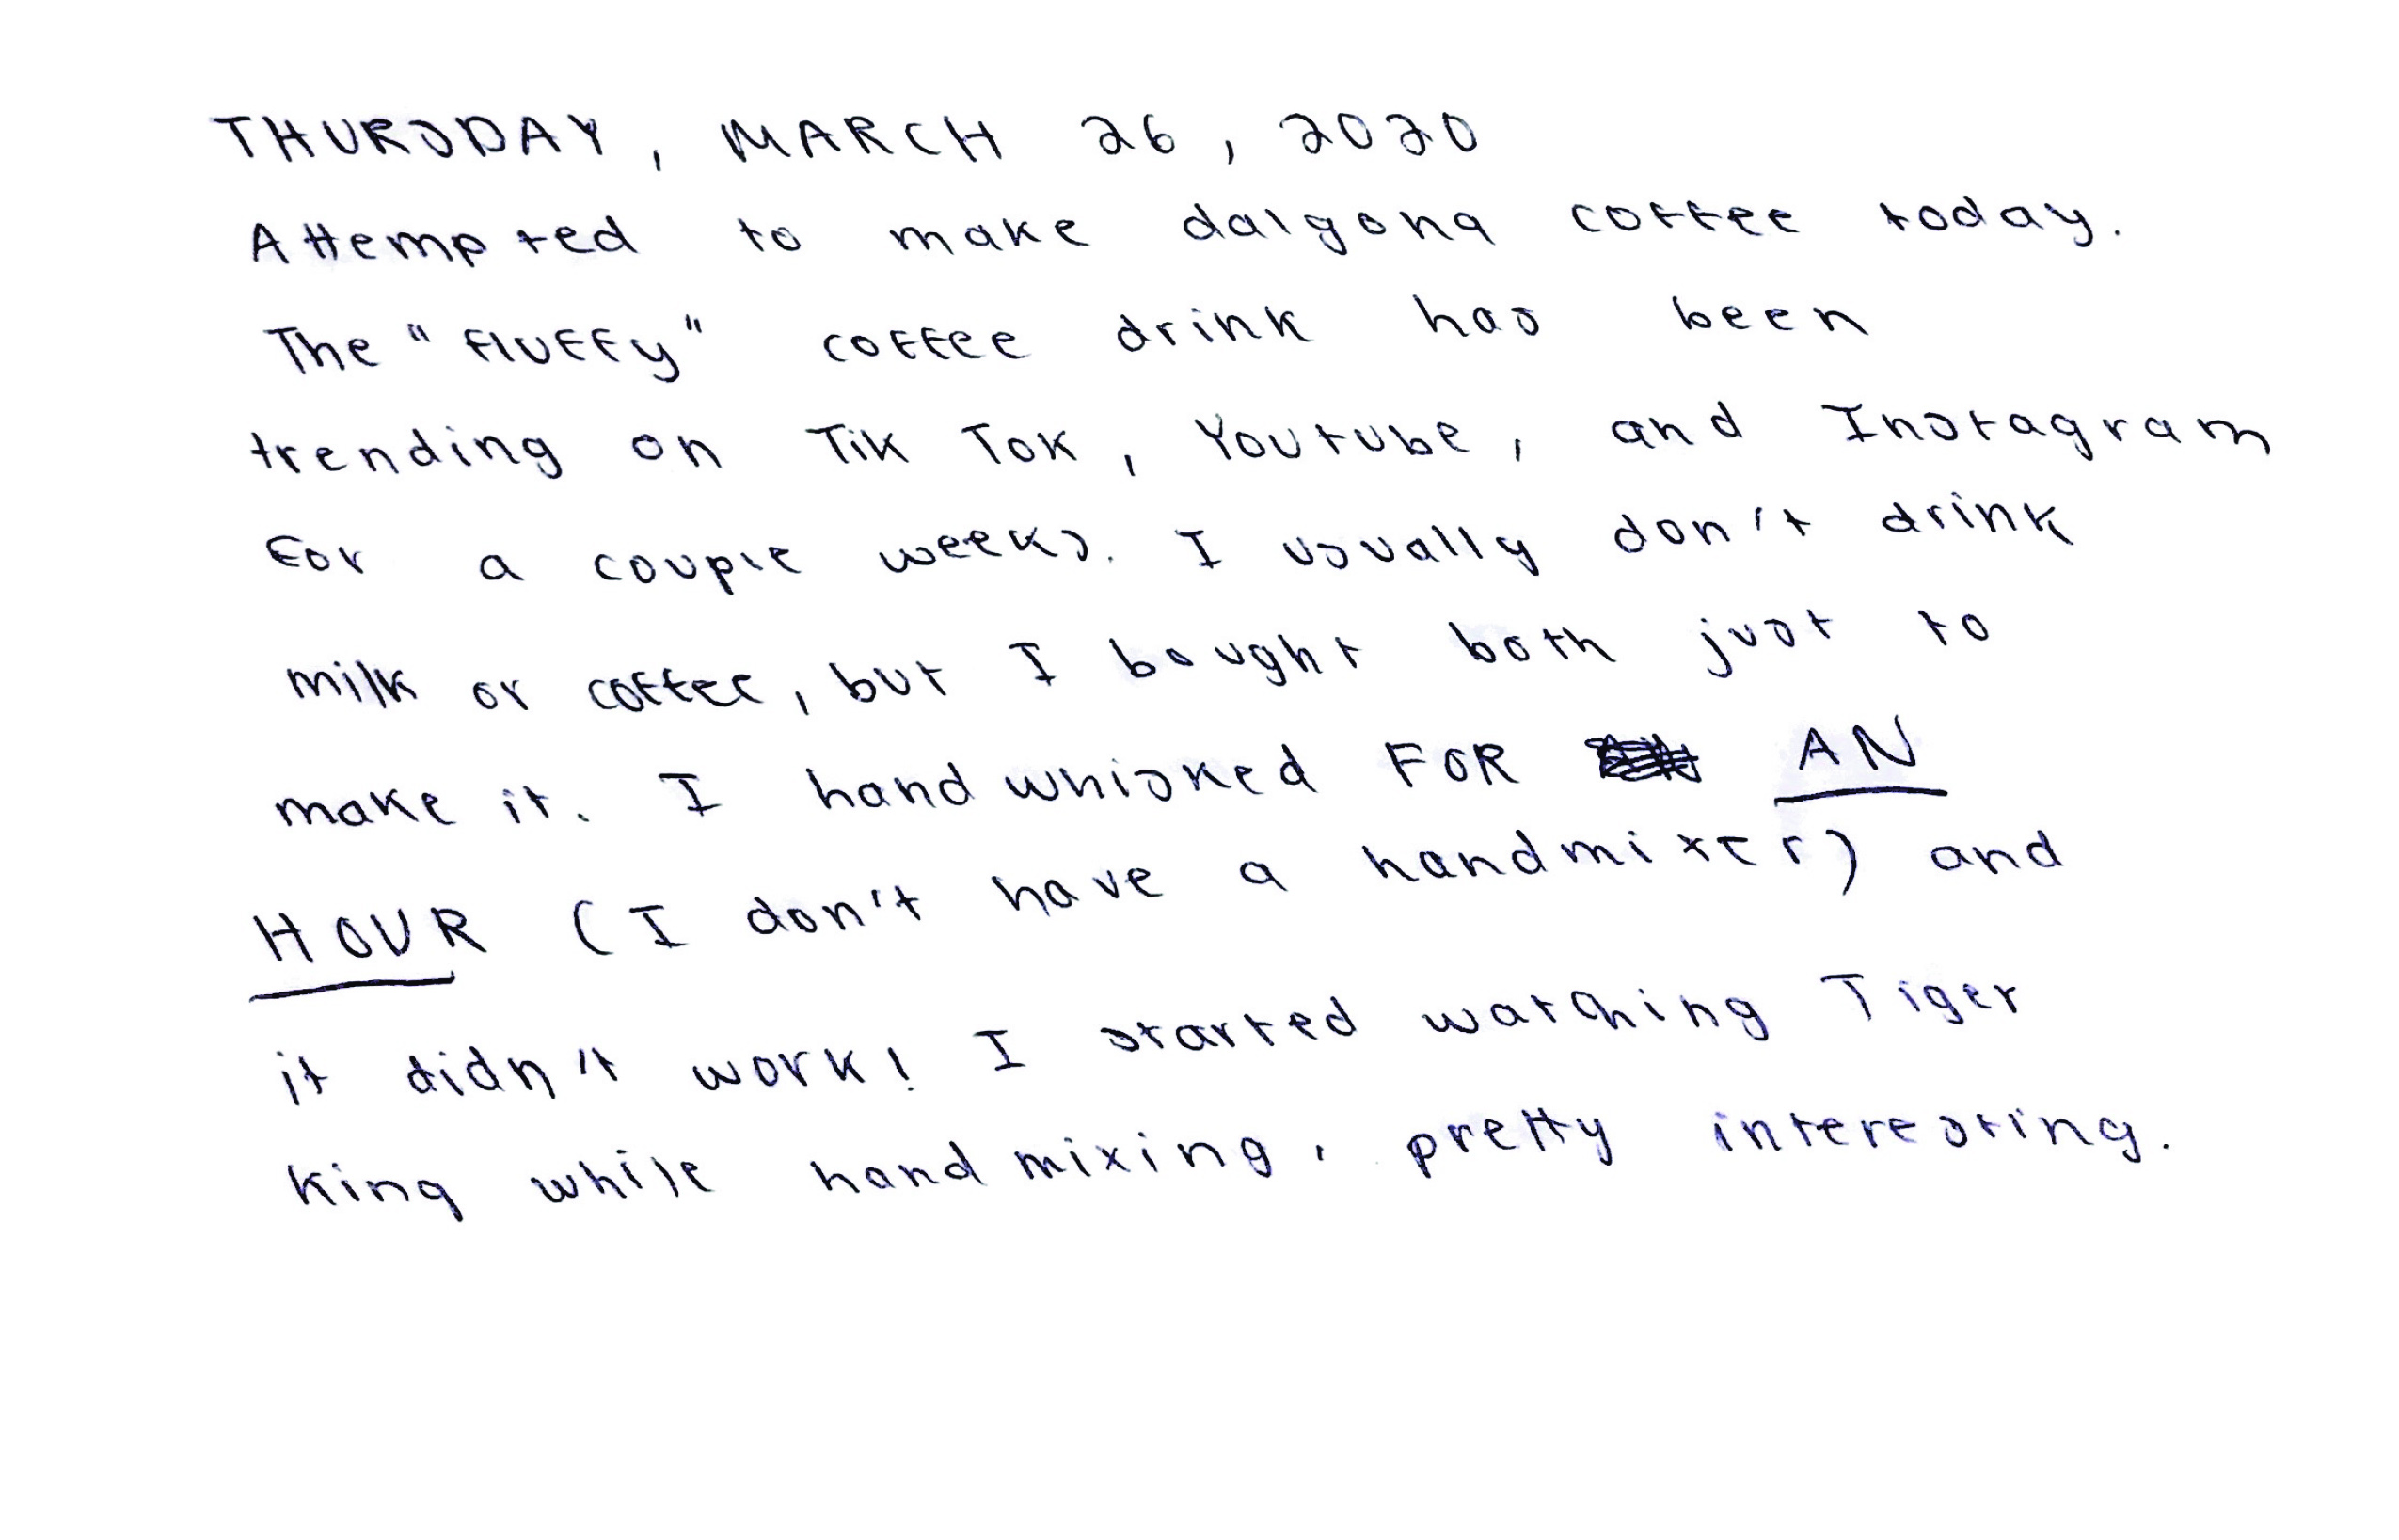 THURSDAY, MARCH 26, 2020
Attempted to make dalgona coffee today.
The "fluffy" coffee drink has been
trending on Tik Tok, Youtube, and Instagram
for a couple weeks. I usually don't drink
milk or coffee, but I bought both just to
make it. I hand whisked FOR AN
HOUR (I don't have a handmixer) and
it didn't work! I started watching Tiger
King while hand mixing, pretty interesting.